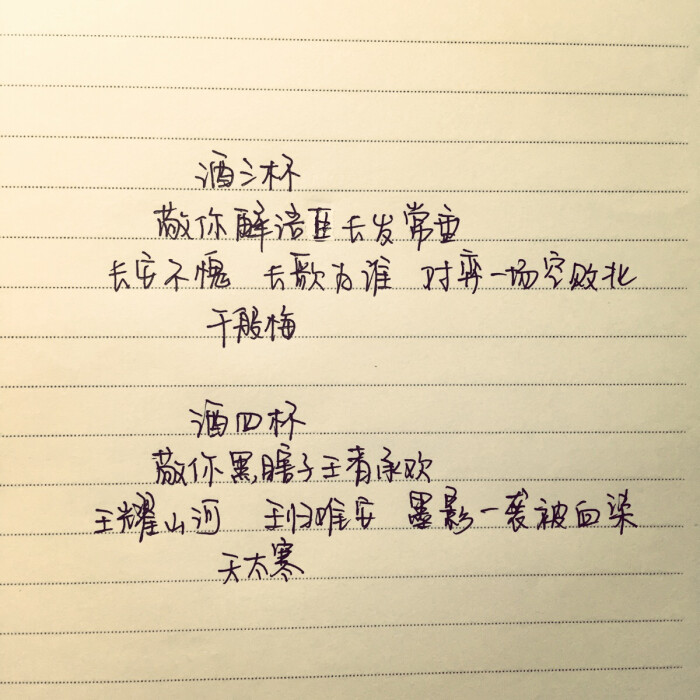 酒三杯
敬你解语臣长发常垂
长安不愧 长歌为谁 对弈一场空败北
千般悔
酒四杯
敬你黑瞎子王者承欢
王耀山河 王归唯安 墨影一袭被血染
天太寒